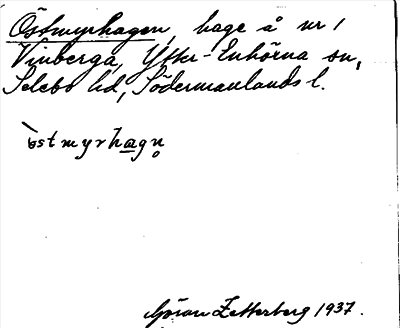 Östmyrhagen, hage å nr 1
Vinberga, Ytter-Enhörna sn,
Selebo hd, Södermanlands l.
`östmyrhagn̥
Göran Zetterberg 1937.